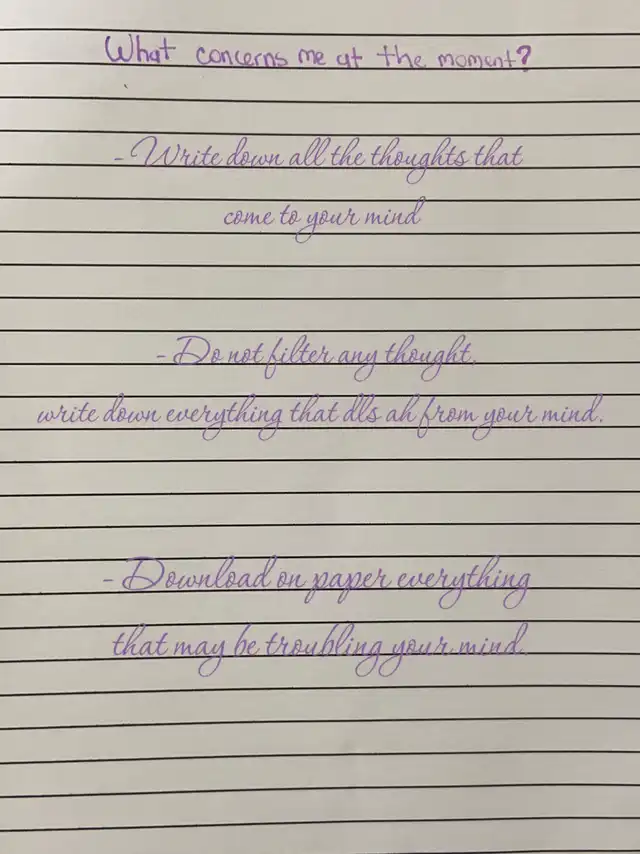 What concerns me at the moment?
- Write down all the thoughts that
come to your mind
- Do not filter any thought,
write down everything that dlls ah from your mind.
- Download on paper everything
that may be troubling your mind.